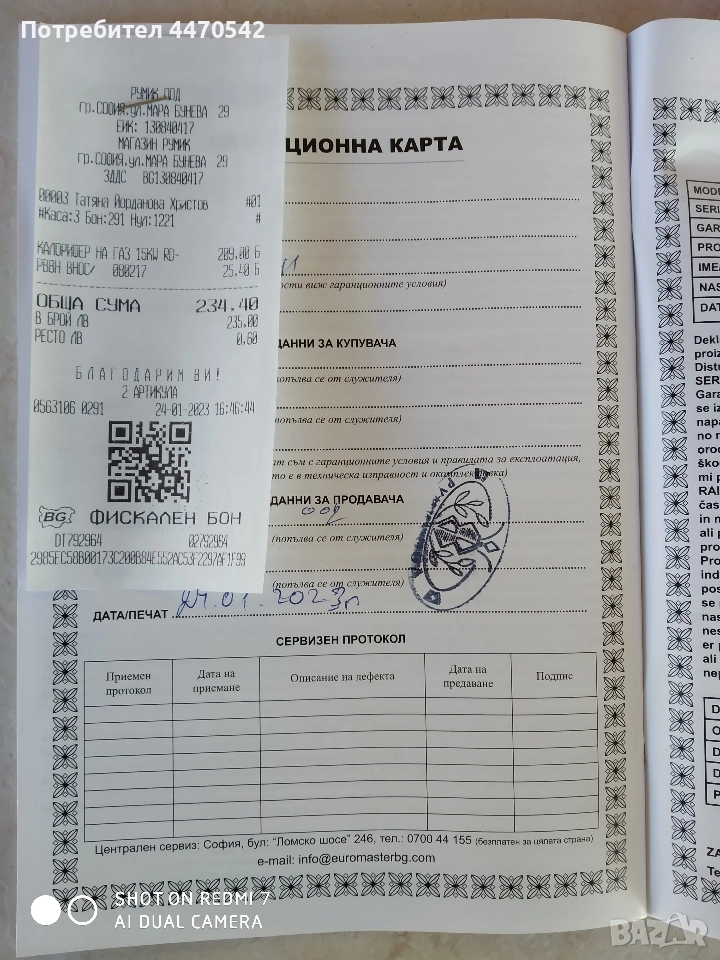 Потребител 4470542
РУМИК ООД
гр.СОФИЯ,ул.МАРА БУНЕВА 29
ЕИК: 130840417
МАГАЗИН РУМИК
гр.СОФИЯ,ул.МАРА БУНЕВА 29
ЗДДС BG130840417
00003 Татяна Йорданова Христов #01
#Каса:3 Бон:291 Нул:1221 #
КАЛОРИФЕР НА ГАЗ 15KW RD- 209.00 Б
025.40 Б
ОБЩА СУМА 234.40
В БРОЙ ЛВ 235.00
РЕСТО ЛВ 0.60
БЛАГОДАРИМ ВИ!
2 АРТИКУЛА
0563106 0291 24-01-2023 16:46:44
BG ФИСКАЛЕН БОН
DT792964 02792964
2985EC58B00173C200B84E552AC53F2297AF1F99
ЦИОННА КАРТА
ости виж гаранционните условия)
ДАННИ ЗА КУПУВАЧА
попълва се от служителя)
(попълва се от служителя)
ат съм с гаранционните условия и правилата за експлоатация,
то е в техническа изправност и окомплектовка)
ДАННИ ЗА ПРОДАВАЧА
(попълва се от служителя)
(попълва се от служителя)
ДАТА/ПЕЧАТ 24.01.2023г
СЕРВИЗЕН ПРОТОКОЛ
Приемен протокол
Дата на приемане
Описание на дефекта
Дата на предаване
Подпис
Централен сервиз: София, бул: "Ломско шосе" 246, тел.: 0700 44 155 (безплатен за цялата страна)
e-mail: info@euromasterbg.com
MODE
SERI
GAR
PRO
IMEA
NAS
DAT
Dekla
proiz
Distr
SERI
Gara
se iz
napa
no r
orod
ško
mi p
RAI
čas
in n
ali p
pro
Pro
ind
pos
se
nas
nes
er p
ali
nep
D
O
D
D
P
ZA
Te
SHOT ON REDMI 7
AI DUAL CAMERA
BAZAR